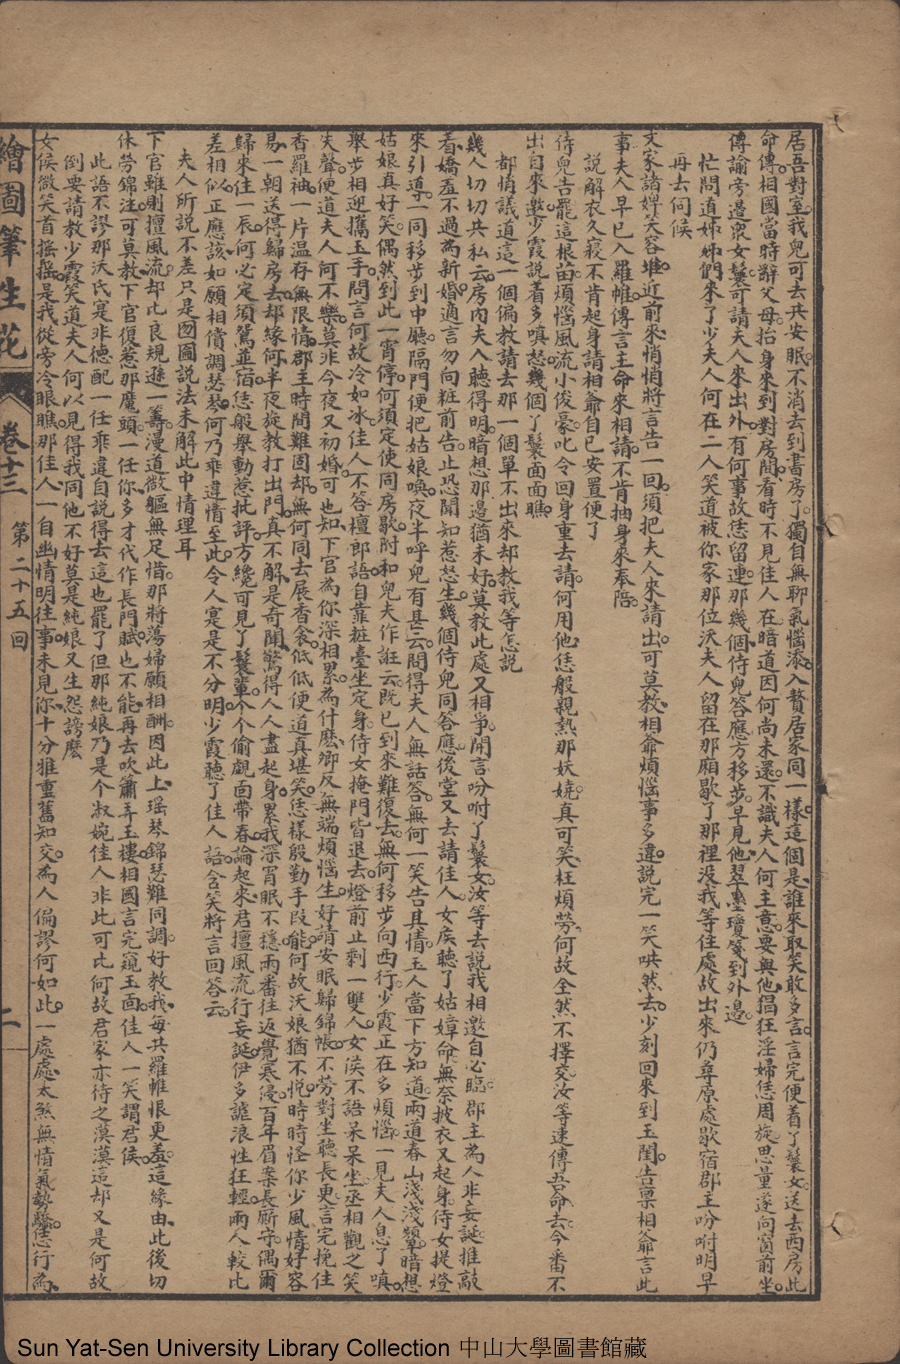 居吾對室我兒可去共安眠不消去到書房了獨自無聊氣惱添入贅居家同一樣這個是誰來取笑敢多言言完便着了鬟女送去西房此
命傳相國當時辭父母抬身來到對房間看時不見佳人在暗道因何尚未還不識夫人何主意要與他猖狂淫婦恁周旋思量遂向窗前坐
傳諭旁邊衆女鬟可請夫人來出外有何事故恁留連那幾個侍兒答應方移步早見他翠墨瓊箋到外邊
忙問道姊姊們來了少夫人何在二人笑道被你家那位沃夫人留在那廂歇了那裡没我等住處故出來仍尋原處歇宿郡主吩咐明早
再去伺候
文家諸婢笑容堆近前來悄悄將言告一回須把夫人來請出可莫教相爺煩惱事多違説完一笑哄然去少刻回來到玉閨告稟相爺言此
事夫人早已入羅幃傳言主命來相請不肯抽身來奉陪
説解衣久寢不肯起身請相爺自已安置便了
侍兒言罷這根苗煩惱風流小俊豪叱令回身重去請何用他恁般親熱那妖嬈真可笑枉煩勞何故全然不擇交汝等速傳吾命去今番不
出自來邀少霞説着多嗔怒幾個了鬟面面瞧
都悄議道這一個偏教請去那一個單不出來却教我等怎説
幾人切切共私云房内夫人聽得明暗想那邊猶未好莫教此處又相爭開言吩咐了鬟女汝等去説我相邀自必臨郡主為人非妄誕推敲
着嬌羞不過為新婚適言勿向粧前告止恐聞知惹怒生幾個侍兒同答應後堂又去請佳人女侯聽了姑嫜命無奈披衣又起身侍女提燈
來引導一同移步到中廳隔門便把姑娘喚夜半呼兒有甚云問得夫人無話答無何一笑告其情玉人當下方知道兩道春山淺淺顰暗想
姑娘真好笑偶然到此一宵停何須定使同房歇附和兒夫作誑云既已到來難復去無何移步向西行少霞正在多煩惱一見夫人息了嗔
舉步相迎攜玉手問言何故冷如冰佳人不答檀郎語自靠粧臺坐定身侍女掩門皆退去燈前止剩一雙人女侯不語呆呆坐丞相觀之笑
失聲便道夫人何不樂莫非今夜又初婚可也知下官為你深相累為什麽卿反無端煩惱生好請安眠歸錦帳不勞對坐聽長更言完挽住
香羅袖一片温存無限情郡主時間難固却無何同去展香衾低低便道真堪笑恁樣殷勤手段能何故沃娘猶不悦時時怪你少風情好容
易一朝送得歸房去却緣何半夜旋教打出門真不解是奇聞驚得人人盡起身累我深宵眠不穩兩番往返覺寒侵百年眉案長厮守偶爾
歸來住一辰何必定須鴛並宿恁般舉動惹批評方纔可見了鬟輩个个偷觀面帶春論起來君擅風流行妄誕伊多謔浪性狂輕兩人較比
差相似正應該如願相償調瑟琴何乃乖違情至此令人寔是不分明少霞聽了佳人語含笑將言回答云
夫人所説不差只是囫圇説法未解此中情理耳
下官雖則擅風流却比良規遜一籌漫道微軀無足惜那將蕩婦願相酬因此上瑶琴錦瑟難同調好教我每共羅帷恨更羞這緣由此後切
休勞錦注可莫教下官復惹那魔頭一任你多才代作長門賦也不能再去吹簫弄玉樓相國言完窺玉面佳人一笑謂君侯
此語不謬那沃氏寔非德配一任乖違自説得去這也罷了但那純娘乃是个淑婉佳人非此可比何故君家亦待之漠漠這却又是何故
倒要請教少霞笑道夫人何以見得我同他不好莫是純娘又生怨謗麽
女侯微笑首摇摇是我從旁冷眼瞧那佳人一自幽情明往事未見你十分推重舊知交為人偏謬何如此一處處太煞無情氣勢驕恁行為
繪圖筆生花 卷十三 第二十五回 二
Sun Yat-Sen University Library Collection 中山大學圖書館藏